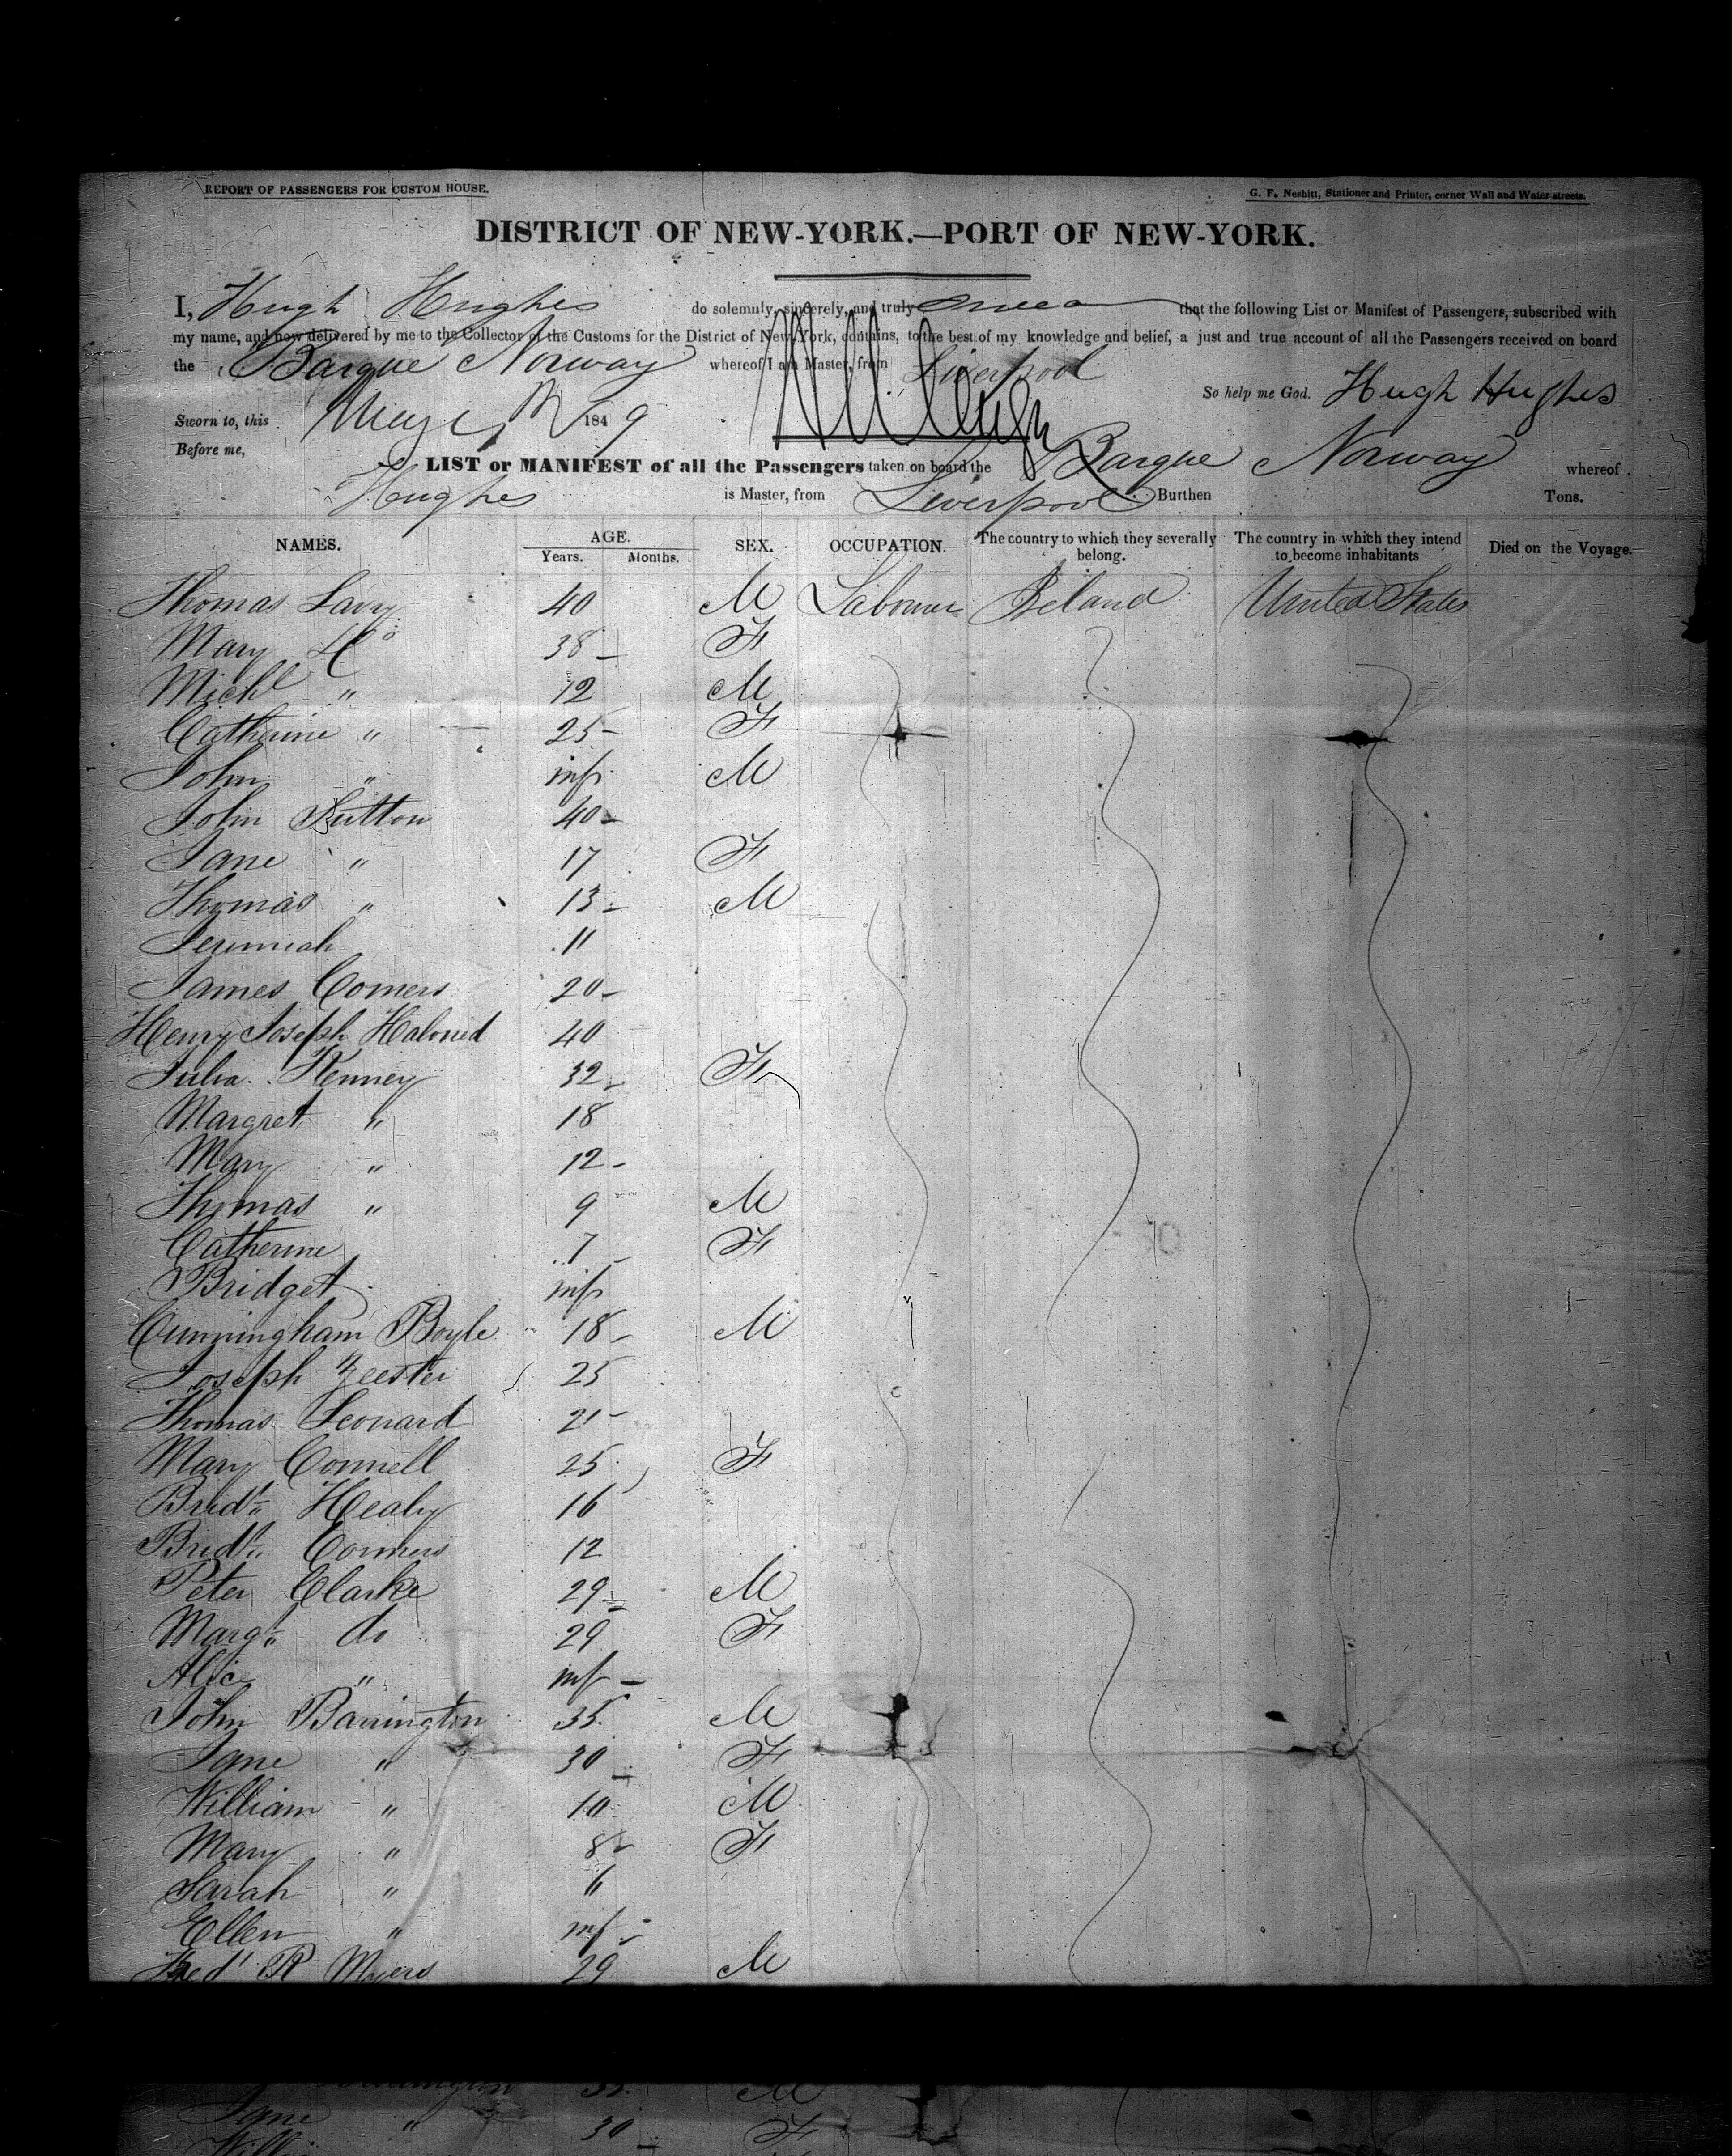 REPORT OF PASSENGERS FOR CUSTOM HOUSE.
G. F. Nesbitt, Stationer and Printer, corner Wall and Water streets.
DISTRICT OF NEW-YORK.—PORT OF NEW-YORK.
I, Hugh Hughes do solemnly, sincerely, and truly swear that the following List or Manifest of Passengers, subscribed with
my name, and now delivered by me to the Collector of the Customs for the District of New York, contains, to the best of my knowledge and belief, a just and true account of all the Passengers received on board
the Barque Norway whereof I am Master, from Liverpool
So help me God. Hugh Hughes
Sworn to, this May 1849
Before me,
LIST or MANIFEST of all the Passengers taken on board the Barque Norway whereof
Hughes is Master, from Liverpool Burthen Tons.
NAMES. AGE. SEX. OCCUPATION. The country to which they severally belong. The country in which they intend to become inhabitants Died on the Voyage.
Years. Months.
Thomas Lavy 40 M Labourer Ireland United States
Mary Do 38 F
Michl " 12 M
Catherine " 25 F
John " inf M
John Sutton 40
Jane " 17 F
Thomas " 13 M
Jeremiah 11
James Comers 20
Henry Joseph 40
Julia Kenney 32 F
Margret " 18
Mary " 12
Thomas " 9 M
Catherine 7 F
Bridget inf
Cunningham Boyle 18 M
Joseph 25
Thomas Leonard 21
Mary Connell 25 F
Bridt. Healy 16
Bridt. Conners 12
Peter Clarke 29 M
Margt. do 29 F
Alice " inf
John Barrington 35 M
Jane " 30 F
William " 10 M
Mary " 8 F
Sarah " 6
Ellen " inf
Fred' R Myers 29 M
Jane " 30 F